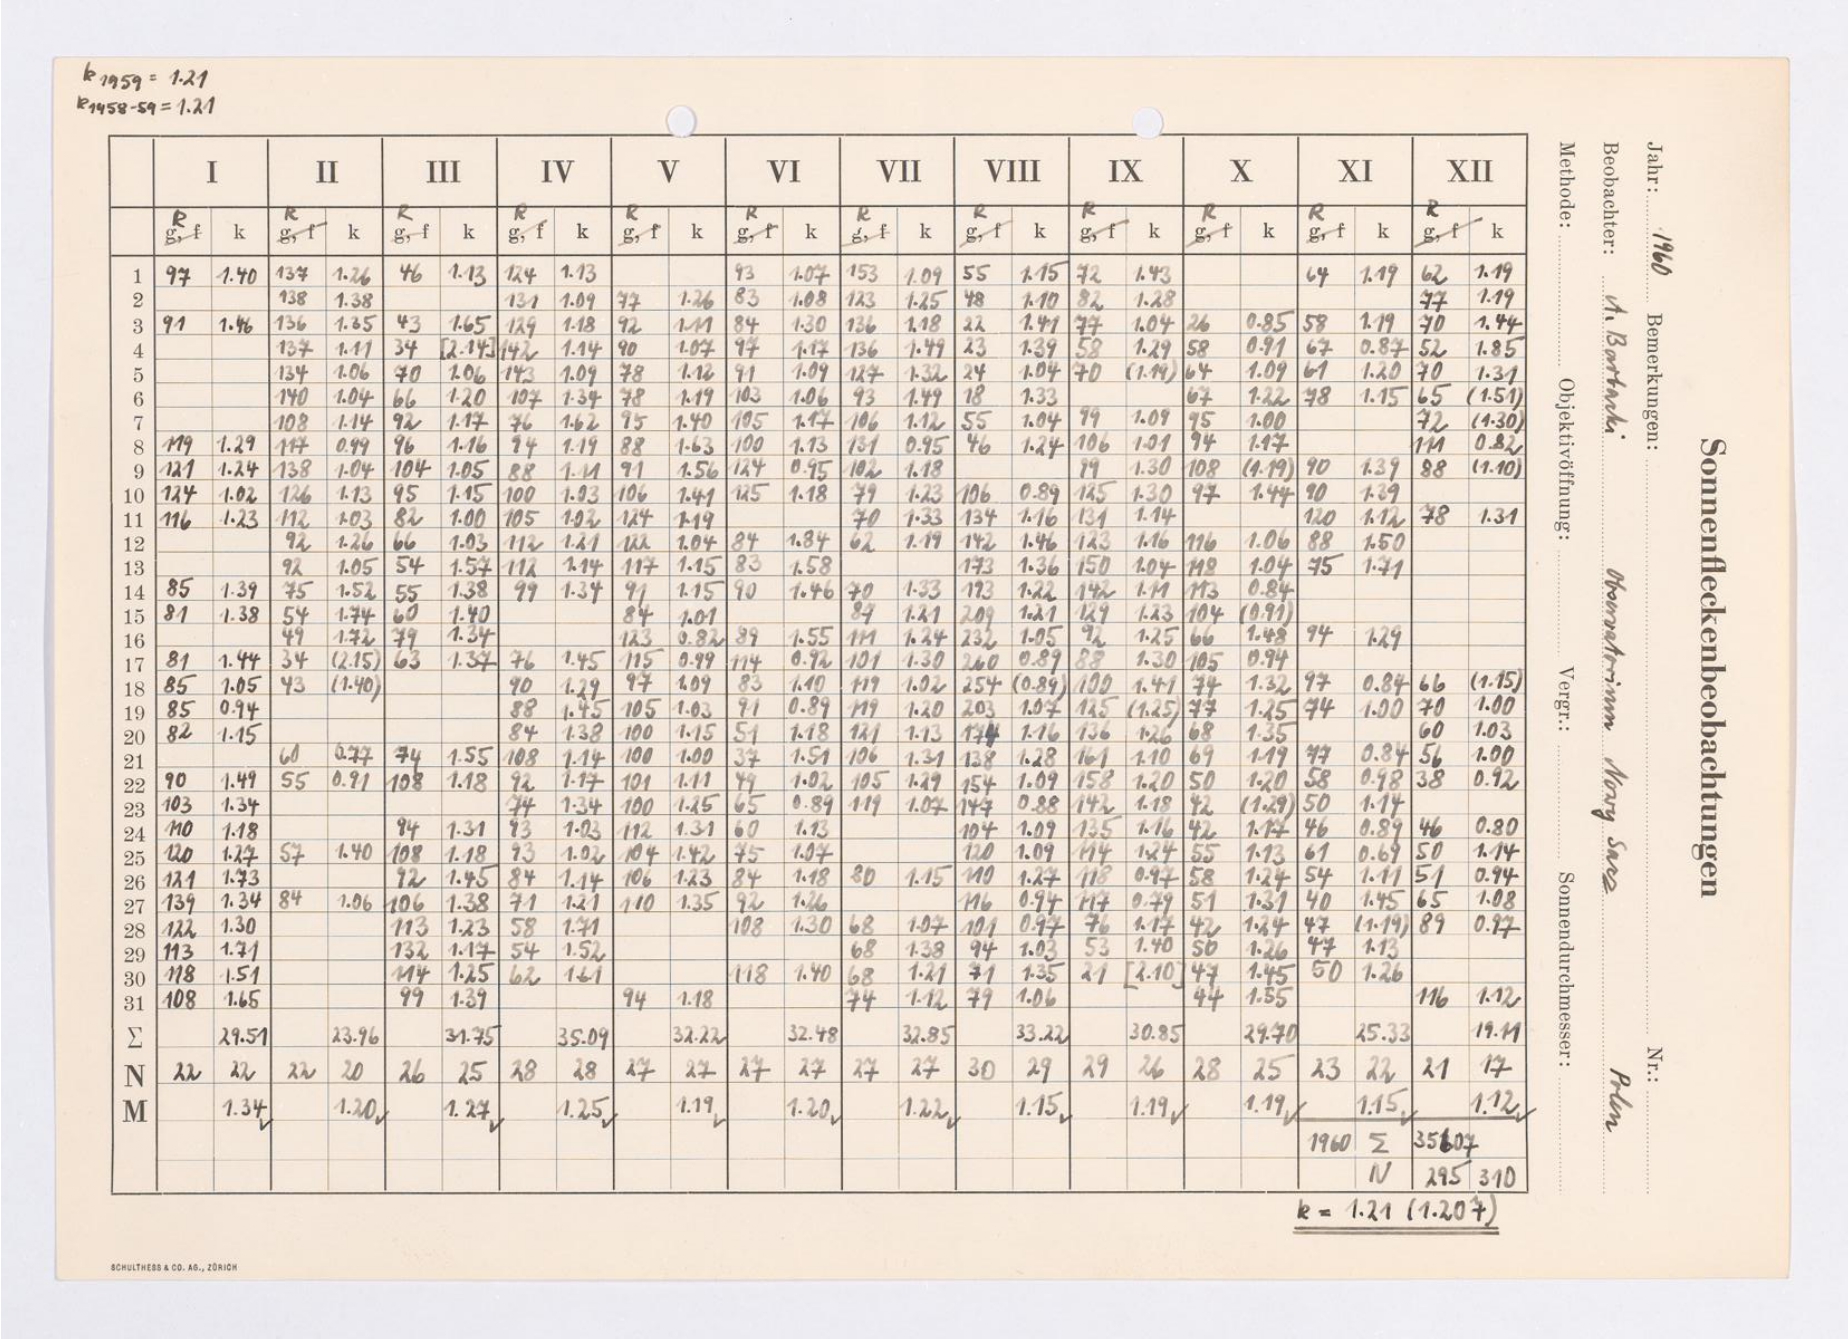 k 1959 = 1.21
k 1958-59 = 1.21
I II III IV V VI VII VIII IX X XI XII
R R R R R R R R R R R R
g, f k g, f k g, f k g, f k g, f k g, f k g, f k g, f k g, f k g, f k g, f k g, f k
1 97 1.40 137 1.26 46 1.13 124 1.13 93 1.07 153 1.09 55 1.15 72 1.43 64 1.19 62 1.19
2 138 1.38 131 1.09 77 1.26 83 1.08 123 1.25 48 1.10 82 1.28 77 1.19
3 91 1.46 136 1.35 43 1.65 129 1.18 92 1.11 84 1.30 136 1.18 22 1.41 77 1.04 26 0.85 58 1.19 70 1.44
4 137 1.11 34 [2.14] 142 1.14 90 1.07 97 1.17 136 1.49 23 1.39 58 1.29 58 0.91 67 0.87 52 1.85
5 134 1.06 70 1.06 143 1.09 78 1.12 91 1.09 127 1.32 24 1.04 70 (1.19) 64 1.09 61 1.20 70 1.31
6 140 1.04 66 1.20 107 1.34 78 1.19 103 1.06 93 1.49 18 1.33 67 1.22 78 1.15 65 (1.51)
7 108 1.14 92 1.17 76 1.62 95 1.40 105 1.17 106 1.12 55 1.04 99 1.09 95 1.00 72 (1.30)
8 119 1.29 117 0.99 96 1.16 94 1.19 88 1.63 100 1.13 131 0.95 46 1.24 106 1.01 94 1.17 111 0.82
9 121 1.24 138 1.04 104 1.05 88 1.11 91 1.56 124 0.95 102 1.18 99 1.30 108 (1.19) 90 1.39 88 (1.10)
10 124 1.02 126 1.13 95 1.15 100 1.03 106 1.41 125 1.18 79 1.23 106 0.89 125 1.30 97 1.44 90 1.39
11 116 1.23 112 1.03 82 1.00 105 1.02 124 1.19 70 1.33 134 1.16 131 1.14 120 1.12 78 1.31
12 92 1.26 66 1.03 112 1.21 122 1.04 84 1.84 62 1.19 142 1.46 123 1.16 116 1.06 88 1.50
13 92 1.05 54 1.57 112 1.14 117 1.15 83 1.58 173 1.36 150 1.04 118 1.04 75 1.71
14 85 1.39 75 1.52 55 1.38 99 1.34 91 1.15 90 1.46 70 1.33 193 1.22 142 1.11 113 0.84
15 81 1.38 54 1.74 60 1.40 84 1.01 89 1.21 209 1.21 129 1.23 104 (0.91)
16 49 1.72 79 1.34 123 0.82 89 1.55 111 1.24 232 1.05 92 1.25 66 1.48 94 1.29
17 81 1.44 34 (2.15) 63 1.37 76 1.45 115 0.99 114 0.92 101 1.30 260 0.89 88 1.30 105 0.94
18 85 1.05 43 (1.40) 90 1.29 97 1.09 83 1.10 119 1.02 254 (0.89) 100 1.41 74 1.32 97 0.84 66 (1.15)
19 85 0.94 88 1.45 105 1.03 91 0.89 119 1.20 203 1.07 125 (1.25) 77 1.25 74 1.00 70 1.00
20 82 1.15 84 1.38 100 1.15 51 1.18 121 1.13 174 1.16 136 1.26 68 1.35 60 1.03
21 60 0.77 74 1.55 108 1.14 100 1.00 37 1.51 106 1.31 138 1.28 161 1.10 69 1.19 77 0.84 56 1.00
22 90 1.49 55 0.91 108 1.18 92 1.17 101 1.11 49 1.02 105 1.29 154 1.09 158 1.20 50 1.20 58 0.98 38 0.92
23 103 1.34 74 1.34 100 1.25 65 0.89 119 1.07 147 0.88 142 1.18 42 (1.29) 50 1.14
24 110 1.18 94 1.31 93 1.03 112 1.31 60 1.13 104 1.09 135 1.16 42 1.17 46 0.89 46 0.80
25 120 1.27 57 1.40 108 1.18 93 1.02 104 1.42 75 1.07 120 1.09 114 1.24 55 1.13 61 0.69 50 1.14
26 121 1.73 92 1.45 84 1.14 106 1.23 84 1.18 80 1.15 110 1.27 118 0.97 58 1.24 54 1.11 51 0.94
27 139 1.34 84 1.06 106 1.38 71 1.21 110 1.35 92 1.26 116 0.94 117 0.79 51 1.31 40 1.45 65 1.08
28 122 1.30 113 1.23 58 1.71 108 1.30 68 1.07 101 0.97 76 1.17 42 1.24 47 (1.19) 89 0.97
29 113 1.71 132 1.17 54 1.52 68 1.38 94 1.03 53 1.40 50 1.26 47 1.13
30 118 1.51 114 1.25 62 1.61 118 1.40 68 1.21 71 1.35 21 [2.10] 47 1.45 50 1.26
31 108 1.65 99 1.39 94 1.18 74 1.12 79 1.06 44 1.55 116 1.12
Σ 29.51 23.96 31.75 35.09 32.22 32.48 32.85 33.22 30.85 29.70 25.33 19.11
N 22 22 22 20 26 25 28 28 27 27 27 27 27 27 30 29 29 26 28 25 23 22 21 17
M 1.34 1.20 1.27 1.25 1.19 1.20 1.22 1.15 1.19 1.19 1.15 1.12
1960 Σ 35607
N 295 310
k = 1.21 (1.207)
SCHULTHESS & CO. AG., ZÜRICH
Sonnenfleckenbeobachtungen
Jahr: 1960 Bemerkungen: Nr.:
Beobachter: A. Barbacki Observatorium Nowy Sącz Polen
Methode: Objektivöffnung: Vergr.: Sonnendurchmesser: